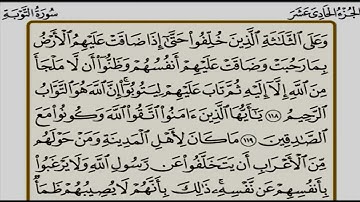 الجزء الحادى عشر
سورة التوبة
وَعَلَى ٱلثَّلَٰثَةِ ٱلَّذِينَ خُلِّفُوا۟ حَتَّىٰٓ إِذَا ضَاقَتْ عَلَيْهِمُ ٱلْأَرْضُ
بِمَا رَحُبَتْ وَضَاقَتْ عَلَيْهِمْ أَنفُسُهُمْ وَظَنُّوٓا۟ أَن لَّا مَلْجَأَ
مِنَ ٱللَّهِ إِلَّآ إِلَيْهِ ثُمَّ تَابَ عَلَيْهِمْ لِيَتُوبُوٓا۟ ۚ إِنَّ ٱللَّهَ هُوَ ٱلتَّوَّابُ
ٱلرَّحِيمُ ١١٨ يَٰٓأَيُّهَا ٱلَّذِينَ ءَامَنُوا۟ ٱتَّقُوا۟ ٱللَّهَ وَكُونُوا۟ مَعَ
ٱلصَّٰدِقِينَ ١١٩ مَا كَانَ لِأَهْلِ ٱلْمَدِينَةِ وَمَنْ حَوْلَهُم
مِّنَ ٱلْأَعْرَابِ أَن يَتَخَلَّفُوا۟ عَن رَّسُولِ ٱللَّهِ وَلَا يَرْغَبُوا۟
بِأَنفُسِهِمْ عَن نَّفْسِهِۦ ۚ ذَٰلِكَ بِأَنَّهُمْ لَا يُصِيبُهُمْ ظَمَأٌ